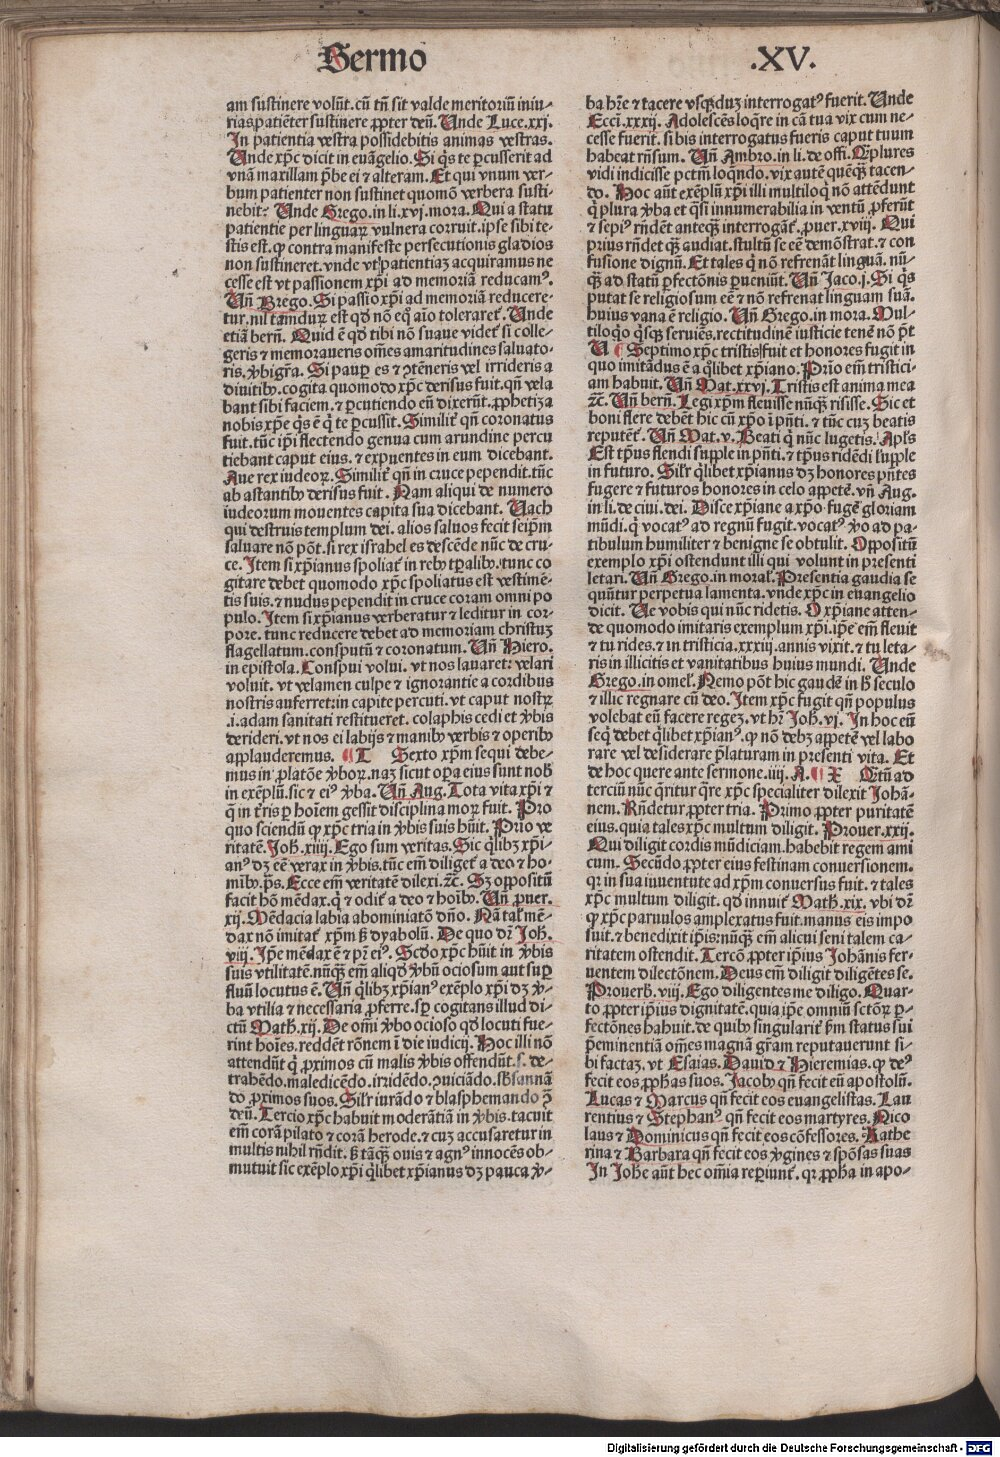 Sermo .XV.
am sustinere volūt. cū tñ sit valde meritoriū iniu-
rias patiēter sustinere ꝓpter deū. Unde Luce.xxj.
In patientia vestra possidebitis animas vestras.
Unde xp̄c dicit in euāgelio. Si q̇s te ꝑcusserit ad
vnā maxillam p̄be ei ⁊ alteram. Et qui vnum ver-
bum patienter non sustinet quomō verbera susti-
nebit? Unde Grego.in li.xvj.mora. Qui a statu
patientie per linguaꝝ vulnera corruit. ipse sibi te-
stis est. ꝙ contra manifeste persecutionis gladios
non sustineret. vnde vt patientiaz acquiramus ne
cesse est vt passionem xp̄i ad memoriā reducamꝰ.
Uñ Grego. Si passio xp̄i ad memoriā reducere-
tur. nil tam duꝝ est qd̄ nō eq̄ aīo toleraret̄. Unde
etiā bern̄. Quid ē qd̄ tibi nō suaue videt̄ si colle-
geris ⁊ memoraueris om̄es amaritudines saluato-
ris. ꝟbigr̄a. Si pauꝑ es ⁊ ꝯtēneris vel irrideris a
diuitibꝰ. cogita quomodo xp̄c derisus fuit. qn̄ vela
bant sibi faciem. ⁊ ꝑcutiendo eū dixerūt. ꝓphetiza
nobis xp̄e q̇s ē q̇ te ꝑcussit. Similit̄ qn̄ coronatus
fuit. tūc ip̄i flectendo genua cum arundine percu
tiebant caput eius. ⁊ expuentes in eum dicebant.
Aue rex iudeoꝝ. Similit̄ qn̄ in cruce pependit. tūc
ab astantibꝰ derisus fuit. Nam aliqui de numero
iudeorum mouentes capita sua dicebant. Uach
qui destruis templum dei. alios saluos fecit seip̄m
saluare nō pōt. si rex israhel es descēde nūc de cru-
ce. Item si xp̄ianus spoliat̄ in rebꝰ tꝑalibꝰ. tunc co
gitare debet quomodo xp̄c spoliatus est vestimē-
tis suis. ⁊ nudus pependit in cruce coram omni po
pulo. Item si xp̄ianus verberatur ⁊ leditur in cor-
pore. tunc reducere debet ad memoriam christuz
flagellatum. consputū ⁊ coronatum. Uñ Hiero.
in epistola. Conspui volui. vt nos lauaret: velari
voluit. vt velamen culpe ⁊ ignorantie a cordibus
nostris auferret: in capite percuti. vt caput nostꝝ
.i. adam sanitati restitueret. colaphis cedi et ꝟbis
derideri. vt nos ei labijs ⁊ manibꝰ verbis ⁊ operibꝰ
applauderemus. ¶ T Sexto xp̄m sequi debe-
mus in ꝓlatōe ꝟboꝝ. naz sicut oꝑa eius sunt nob̄
in exēplū. sic ⁊ eiꝰ ꝟba. Uñ Aug. Tota vita xp̄i ⁊
q̄ in t̄ris ꝑ hoīem gessit disciplina moꝝ fuit. Pro
quo sciendū ꝙ xp̄c tria in ꝟbis suis hūit. Prīo ve
ritatē. Joh̄.xiiij. Ego sum veritas. Sic q̄libꝫ xp̄i-
anꝰ dꝫ eē verax in ꝟbis. tūc em̄ diliget̄ a deo ⁊ ho-
mībꝰ. p̄s. Ecce em̄ veritatē dilexi. ⁊c. Sꝫ oppositū
facit hō mēdax. q̇ ⁊ odit̄ a deo ⁊ hoībꝰ. Uñ ꝓuer.
xij. Mēdacia labia abominatō dn̄o. Nā tal̄ mē-
dax nō imitat̄ xp̄m ꝫ dyabolū. De quo dr̄ Joh̄.
viij. Ip̄e mēdax ē ⁊ pr̄ eiꝰ. Scd̄o xp̄c hūit in ꝟbis
suis vtilitatē. nūꝗ em̄ aliqd̄ ꝟbū ociosum aut suꝑ
fluū locutus ē. Uñ q̄libꝫ xp̄ianꝰ exēplo xp̄i dꝫ ꝟ-
ba vtilia ⁊ necessaria ꝓferre. sꝑ cogitans illud di-
ctū Math̄.xij. De om̄i ꝟbo ocioso qd̄ locuti fue-
rint hoīes. reddēt rōnem ī die iudicij. Hoc illi nō
attendūt q̇ ꝓximos cū malis ꝟbis offendūt. s. de-
trahēdo. maledicēdo. irridēdo. ꝯuiciādo. sb̄sannā
do ꝓximos suos. Silr̄ iurādo ⁊ blasphemando ꝯ̄
deū. Tercio xp̄c habuit moderātiā in ꝟbis. tacuit
em̄ corā pilato ⁊ corā herode. ⁊ cuz accusaretur in
multis nihil rn̄dit. ꝫ tāꝗ ouis ⁊ agnꝰ innocēs ob-
mutuit sic exēplo xp̄i q̄libet xp̄ianus dꝫ pauca ꝟ-
ba hr̄e ⁊ tacere vsꝗduz interrogatꝰ fuerit. Unde
Eccī.xxxij. Adolescēs loq̄re in cā tua vix cum ne-
cesse fuerit. si bis interrogatus fueris caput tuum
habeat rn̄sum. Uñ Ambro.in li.de offi. Cōplures
vidi indicisse pctm̄ loq̄ndo. vix autē quēꝗ tacen-
do. Hoc aūt exēplū xp̄i illi multiloq̇ nō attēdunt
q̇ plura ꝟba et q̄si innumerabilia in ventū ꝓferūt
⁊ sepiꝰ rn̄dēt anteꝗ interrogāt̄. ꝓuer.xviij. Qui
prius rn̄det ꝗ audiat. stultū se eē demōstrat. ⁊ con
fusione dignū. Et tales q̇ nō refrenāt linguā. nū-
ꝗ ad statū ꝑfectōnis ꝑueniūt. Uñ Jaco.j. Si q̇s
putat se religiosum eē ⁊ nō refrenat linguam suā.
huius vana ē religio. Uñ Grego.in mora. Mul-
tiloqͦo q̇sꝗ seruiēs. rectitudinē iusticie tenē nō p̄t
U ¶ Septimo xp̄c tristis fuit et honores fugit in
quo imitādus ē a q̄libet xp̄iano. Prīo em̄ tristici-
am habuit. Uñ Mat.xxvj. Tristis est anima mea
⁊c. Uñ bern̄. Legi xp̄m fleuisse nūꝗ risisse. Sic et
boni flere debēt hic cū xp̄o ip̄nti. ⁊ tūc cuz beatis
reputēt̄. Uñ Mat.v. Beati q̇ nūc lugetis. Apl̄s
Est tp̄us flendi supple in p̄nti. ⁊ tp̄us ridēdi supple
in futuro. Silr̄ q̄libet xp̄ianus dꝫ honores p̄ntes
fugere ⁊ futuros honores in celo appetē. vñ Aug.
in li.de ciui.dei. Disce xp̄iane a xp̄o fugē gloriam
mūdi. q̇ vocatꝰ ad regnū fugit. vocatꝰ ꝟo ad pa-
tibulum humiliter ⁊ benigne se obtulit. Oppositū
exemplo xp̄i ostendunt illi qui volunt in presenti
letari. Uñ Grego.in moral̄. Presentia gaudia se
quūtur perpetua lamenta. vnde xp̄c in euangelio
dicit. Ue vobis qui nūc ridetis. O xp̄iane atten-
de quomodo imitaris exemplum xp̄i. ip̄e em̄ fleuit
⁊ tu rides. ⁊ in tristicia.xxxiij. annis vixit. ⁊ tu leta-
ris in illicitis et vanitatibus huius mundi. Unde
Grego.in omel̄. Nemo pōt hic gaudē in h̄ seculo
⁊ illic regnare cū deo. Item xp̄c fugit qn̄ populus
volebat eū facere regeꝫ. vt hr̄ Joh̄.vj. In hoc eū
seq̄ debet q̄libet xp̄ianꝰ. ꝙ nō debꝫ appetē vel labo
rare vel desiderare p̄laturam in presenti vita. Et
de hoc quere ante sermone.iiij. A. ¶ X Cōtū ad
terciū nūc q̄ritur q̄re xp̄c specialiter dilexit Johā-
nem. Rn̄detur ꝓpter tria. Primo ꝓpter puritatē
eius. quia tales xp̄c multum diligit. Prouer.xxij.
Qui diligit cordis mūdiciam. habebit regem ami
cum. Secūdo ꝓpter eius festinam conuersionem.
qꝛ in sua iuuentute ad xp̄m conuersus fuit. ⁊ tales
xp̄c multum diligit. qd̄ innuit̄ Math̄.xix. vbi dr̄
ꝙ xp̄c paruulos amplexatus fuit. manus eis impo
suit. ⁊ benedixit ip̄is: nūꝗ em̄ alicui seni talem ca-
ritatem ostendit. Tercō ꝓpter ip̄ius Johānis fer-
uentem dilectōnem. Deus em̄ diligit diligētes se.
Prouerb̄.viij. Ego diligentes me diligo. Quar-
to ꝓpter ip̄ius dignitatē. quia ip̄e omniū sctōꝝ ꝑ-
fectōnes habuit. de quibꝰ singularit̄ ꝑm status sui
p̄eminentiā om̄es magnā gr̄am reputauerunt si-
bi factaꝫ. vt Esaias. Dauid ⁊ Hieremias. ꝙ deꝰ
fecit eos ꝓph̄as suos. Jacobꝰ qn̄ fecit eū apostolū.
Lucas ⁊ Marcus qn̄ fecit eos euangelistas. Lau
rentius ⁊ Stephanꝰ qn̄ fecit eos martyres. Nico
laus ⁊ Dominicus qn̄ fecit eos cōfessores. Kathe
rina ⁊ Barbara qn̄ fecit eos ꝟgines ⁊ spōsas suas
In Joh̄e aūt hec om̄ia reꝑiunt̄. qꝛ ꝓph̄a in apo-
Digitalisierung gefördert durch die Deutsche Forschungsgemeinschaft - DFG